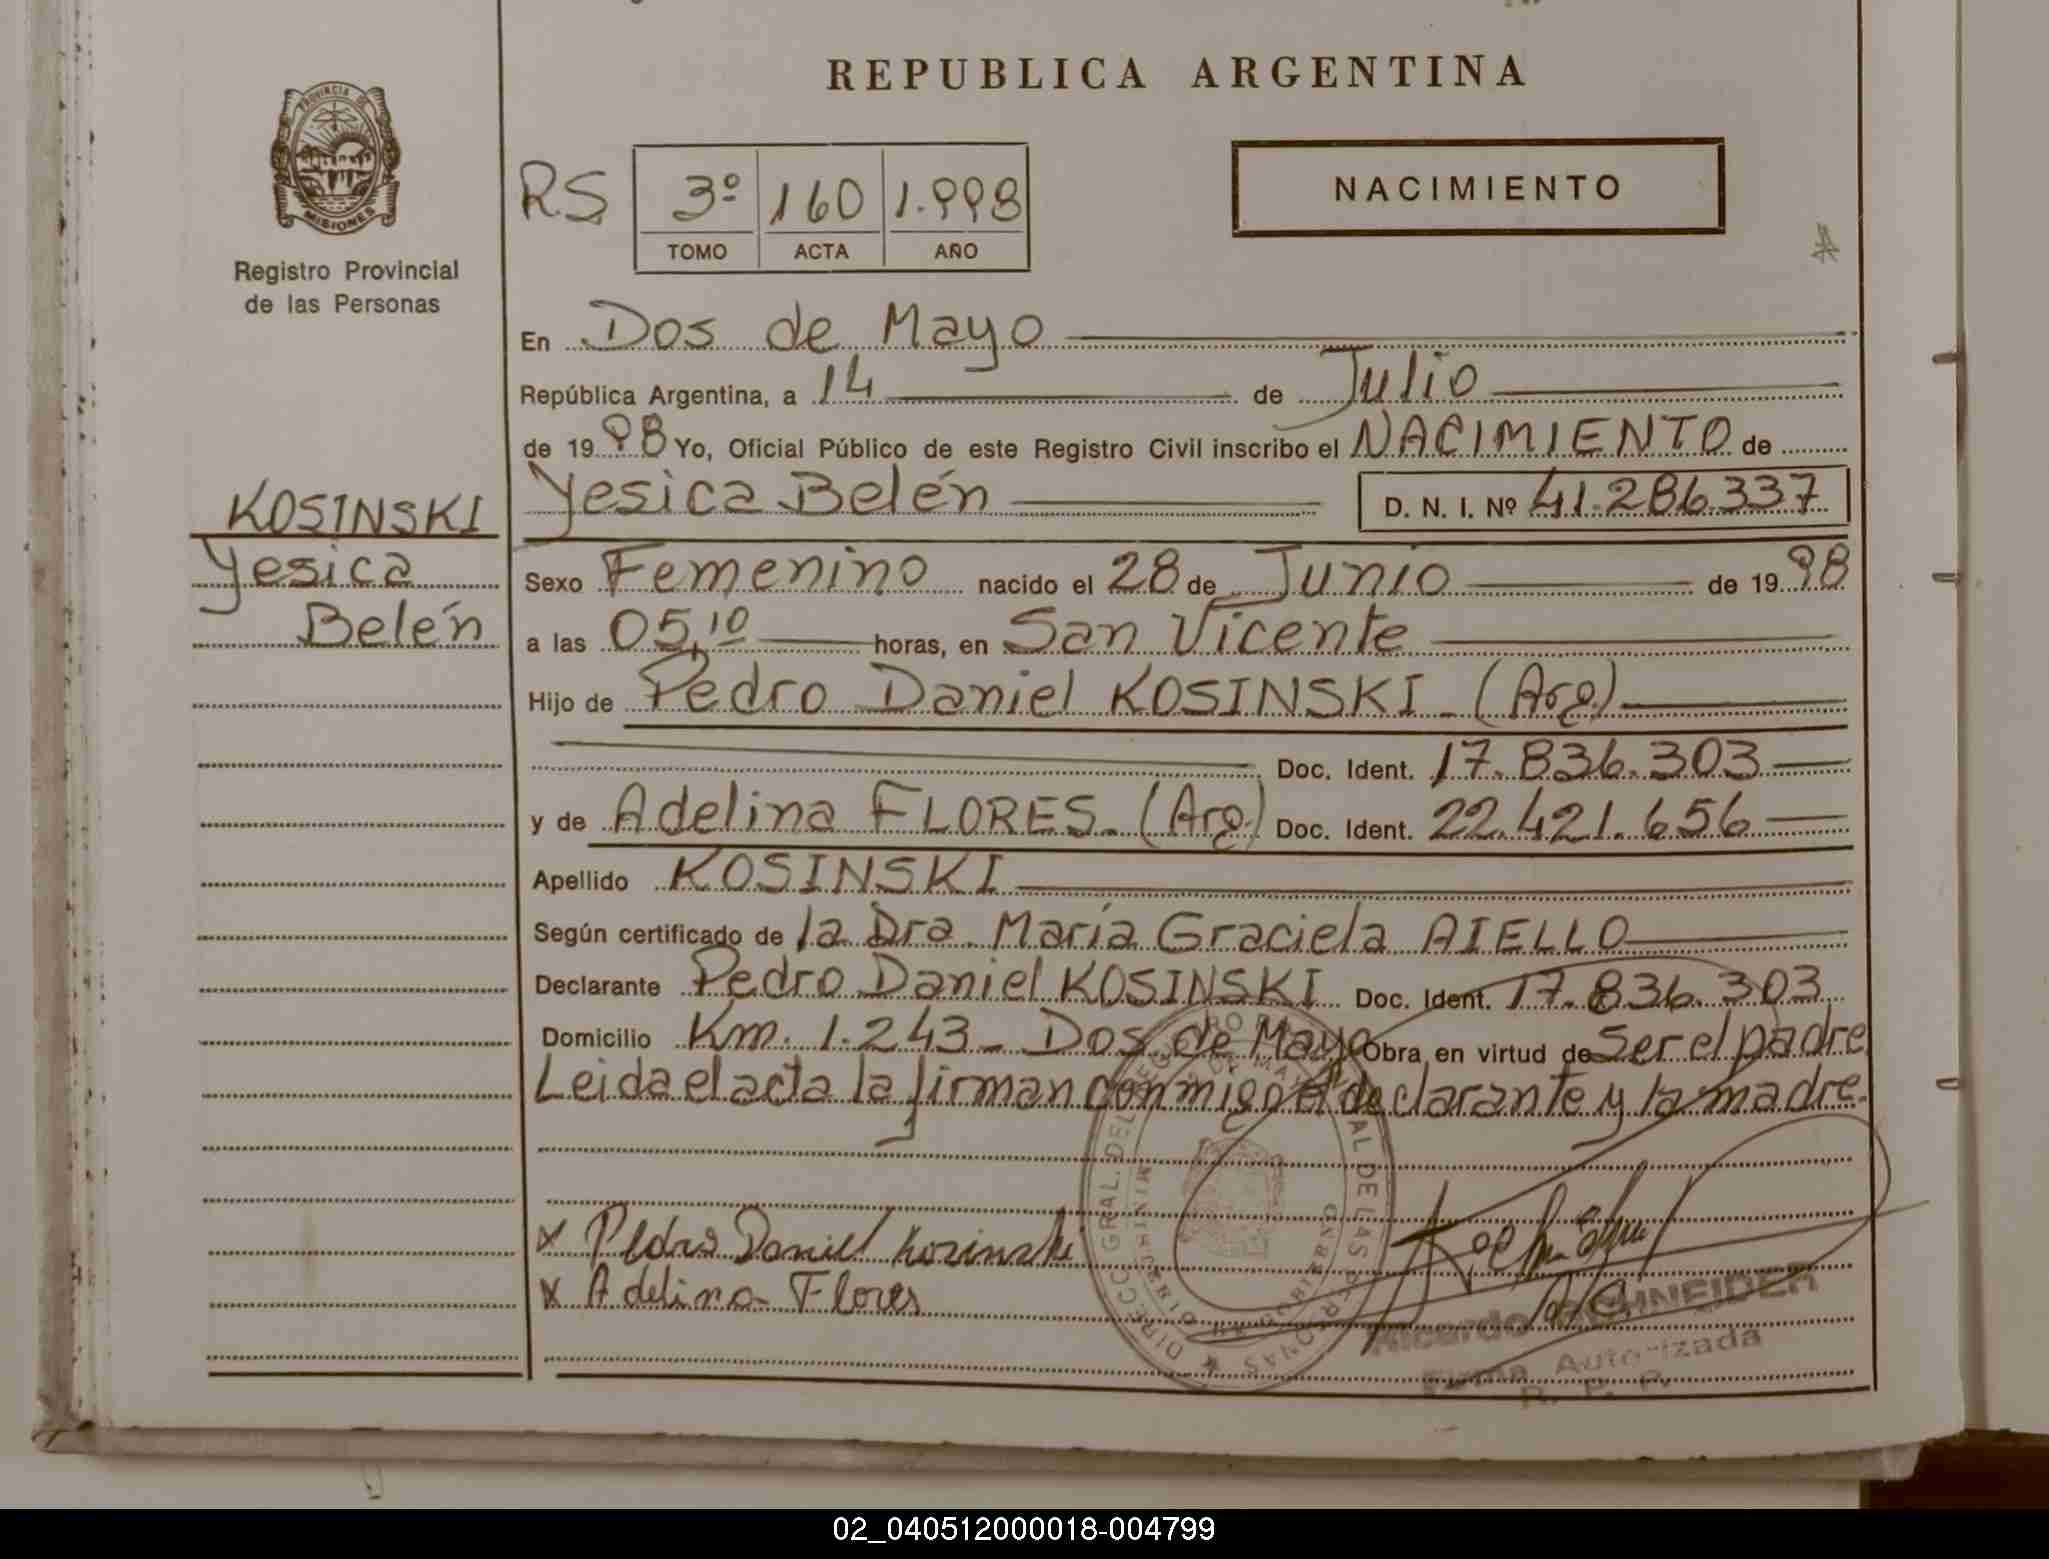 REPUBLICA ARGENTINA
PROVINCIA DE
MISIONES
Registro Provincial
de las Personas
RS
3º 160 1.998
TOMO ACTA AÑO
NACIMIENTO
En Dos de Mayo
República Argentina, a 14 de Julio
de 1998 Yo, Oficial Público de este Registro Civil inscribo el NACIMIENTO de
KOSINSKI
Yesica
Belén
Yesica Belén D. N. I. Nº 41.286.337
Sexo Femenino nacido el 28 de Junio de 1998
a las 05,10 horas, en San Vicente
Hijo de Pedro Daniel KOSINSKI - (Arg)
Doc. Ident. 17.836.303
y de Adelina FLORES - (Arg) Doc. Ident. 22.421.656
Apellido KOSINSKI
Según certificado de la Dra. María Graciela AIELLO
Declarante Pedro Daniel KOSINSKI Doc. Ident. 17.836.303
Domicilio Km. 1.243 - Dos de Mayo Obra en virtud de Ser el padre
Leida el acta la firman conmigo el declarante y la madre.
x Pedro Daniel Kosinski
x Adelina Flores
DIRECC. GRAL. DEL DE LAS PERSONAS
Ricardo SCHNEIDER
Firma Autorizada
R. P. P.
02_040512000018-004799